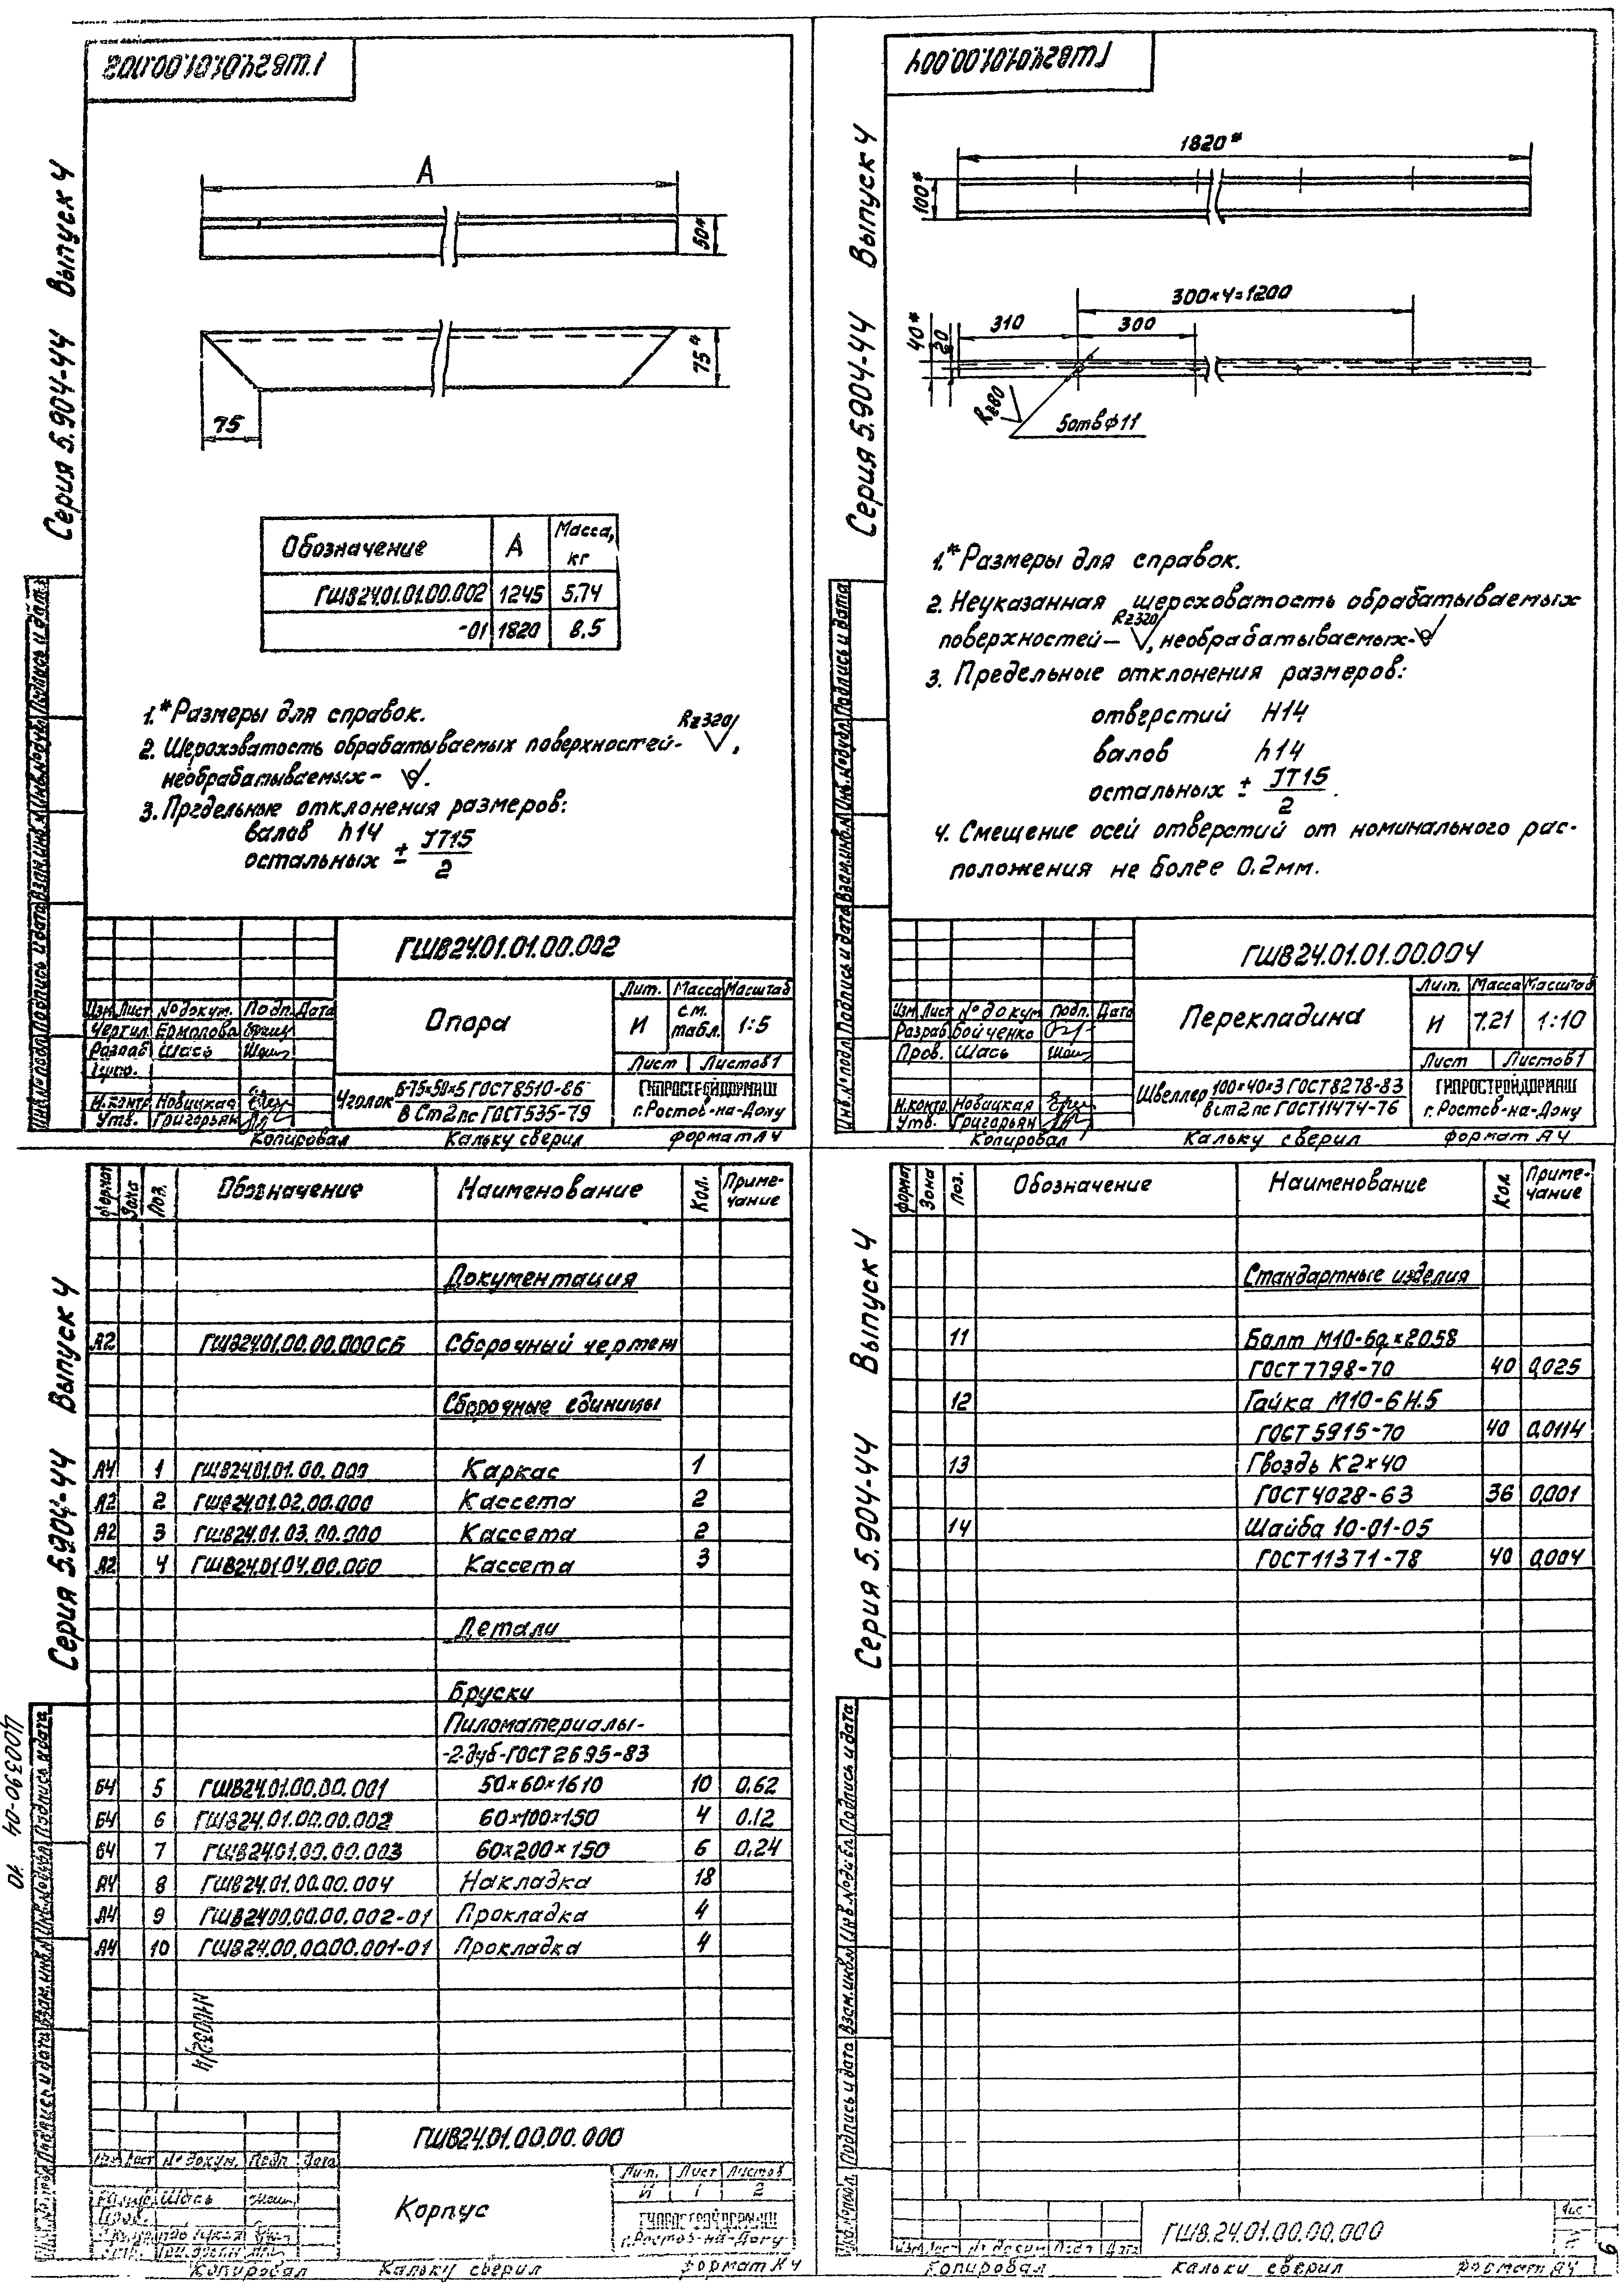 ГШВ24.01.01.00.002
Серия 5.904-44 Выпуск 4
А
50*
75*
75
Обозначение А Масса, кг
ГШВ24.01.01.00.002 1245 5.74
-01 1820 8.5
1.* Размеры для справок.
2. Шероховатость обрабатываемых поверхностей- Rz320,
необрабатываемых- .
3. Предельные отклонения размеров:
валов h14
остальных ± IT15/2
ГШВ24.01.01.00.002
Опора
Лит. Масса Масштаб
И см. табл. 1:5
Лист Листов 1
Изм Лист № докум. Подп. Дата
Чертил Ермолова
Разраб Шась
Н.контр. Новицкая
Утв. Григорьян
Уголок Б-75×50×5 ГОСТ 8510-86
В Ст2пс ГОСТ 535-79
ГИПРОСТРОЙДОРМАШ
г.Ростов-на-Дону
Инв.№ подл. Подпись и дата Взам.инв.№ Инв.№ дубл. Подпись и дата
Копировал Кальку сверил формат А4
ГШВ24.01.01.00.004
Серия 5.904-44 Выпуск 4
1820*
100*
300×4=1200
310 300
40*
20
Rz80
5отв ф11
1.* Размеры для справок.
2. Неуказанная шероховатость обрабатываемых
поверхностей- Rz320, необрабатываемых-
3. Предельные отклонения размеров:
отверстий Н14
валов h14
остальных ± IT15/2.
4. Смещение осей отверстий от номинального рас-
положения не более 0.2мм.
ГШВ24.01.01.00.004
Перекладина
Лит. Масса Масштаб
И 7.21 1:10
Лист Листов 1
Изм Лист № докум Подп. Дата
Разраб Бойченко
Пров. Шась
Н.контр. Новицкая
Утв. Григорьян
Швеллер 100×40×3 ГОСТ 8278-83
В ст2пс ГОСТ 11474-76
ГИПРОСТРОЙДОРМАШ
г.Ростов-на-Дону
Инв.№ подл. Подпись и дата Взам.инв.№ Инв.№ дубл. Подпись и дата
Копировал Кальку сверил формат А4
Серия 5.904-44 Выпуск 4
Формат Зона Поз. Обозначение Наименование Кол. Приме-чание
Документация
А2 ГШВ24.01.00.00.000СБ Сборочный чертеж
Сборочные единицы
А4 1 ГШВ24.01.01.00.000 Каркас 1
А2 2 ГШВ24.01.02.00.000 Кассета 2
А2 3 ГШВ24.01.03.00.000 Кассета 2
А2 4 ГШВ24.01.04.00.000 Кассета 3
Детали
Бруски
Пиломатериалы-
-2-дуб-ГОСТ 2695-83
Б4 5 ГШВ24.01.00.00.001 50×60×1610 10 0.62
Б4 6 ГШВ24.01.00.00.002 60×100×150 4 0.12
Б4 7 ГШВ24.01.00.00.003 60×200×150 6 0,24
А4 8 ГШВ24.01.00.00.004 Накладка 18
А4 9 ГШВ24.00.00.00.002-01 Прокладка 4
А4 10 ГШВ24.00.00.00.001-01 Прокладка 4
Ц00390-04 10
ГШВ24.01.00.00.000
Корпус
Лит. Лист Листов
И 1 2
Изм Лист № докум. Подп Дата
Шась
ГИПРОСТРОЙДОРМАШ
г.Ростов-на-Дону
Копировал Кальку сверил формат А4
Серия 5.904-44 Выпуск 4
формат Зона Поз. Обозначение Наименование Кол. Приме-чание
Стандартные изделия
11 Болт М10-6g×20.58
ГОСТ 7798-70 40 0,025
12 Гайка М10-6Н.5
ГОСТ 5915-70 40 0,0114
13 Гвоздь К2×40
ГОСТ 4028-63 36 0,001
14 Шайба 10-01-05
ГОСТ 11371-78 40 0,004
ГШВ.24.01.00.00.000
Изм. Лист № докум Подп Дата
Копировал Кальку сверил формат А4